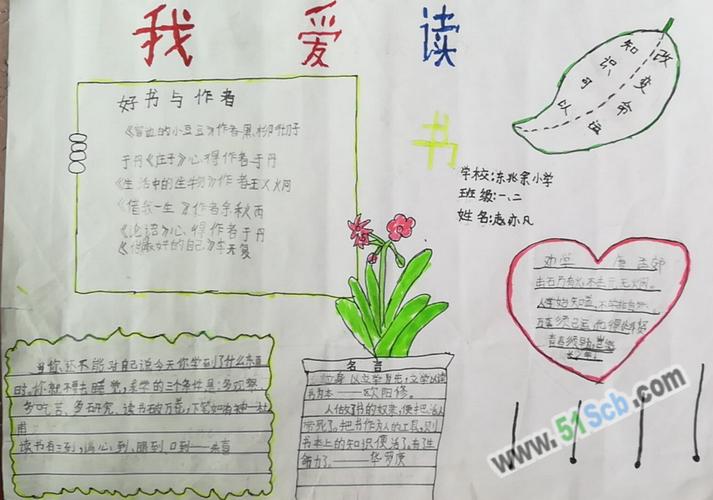 我 爱 读
书
好书与作者
《窗边的小豆豆》作者黑柳彻子
于丹《庄子》心得作者于丹
《生活中的生物》作者王
《借我一生》作者余秋雨
《论语》心得作者于丹
《做最好的自己》李开复
改变命运
知识可以
学校:东兆余小学
班级:一、二
姓名:赵亦凡
劝学
当你还不能对自己说今天你学到了什么东西
时,你就不要去睡觉,求学的三个条件是:多观察
多吃苦、多研究。读书破万卷,下笔如有神—杜
甫
读书有三到,谓心到,眼到,口到——朱熹
名言
立身以立学为先,立学以读
书为本——欧阳修。
人做了书的奴隶,便把活人
带死了。把书作为人的工具,则
书本上的知识便活了。有了生
命力了。——华罗庚
www.51Scb.com